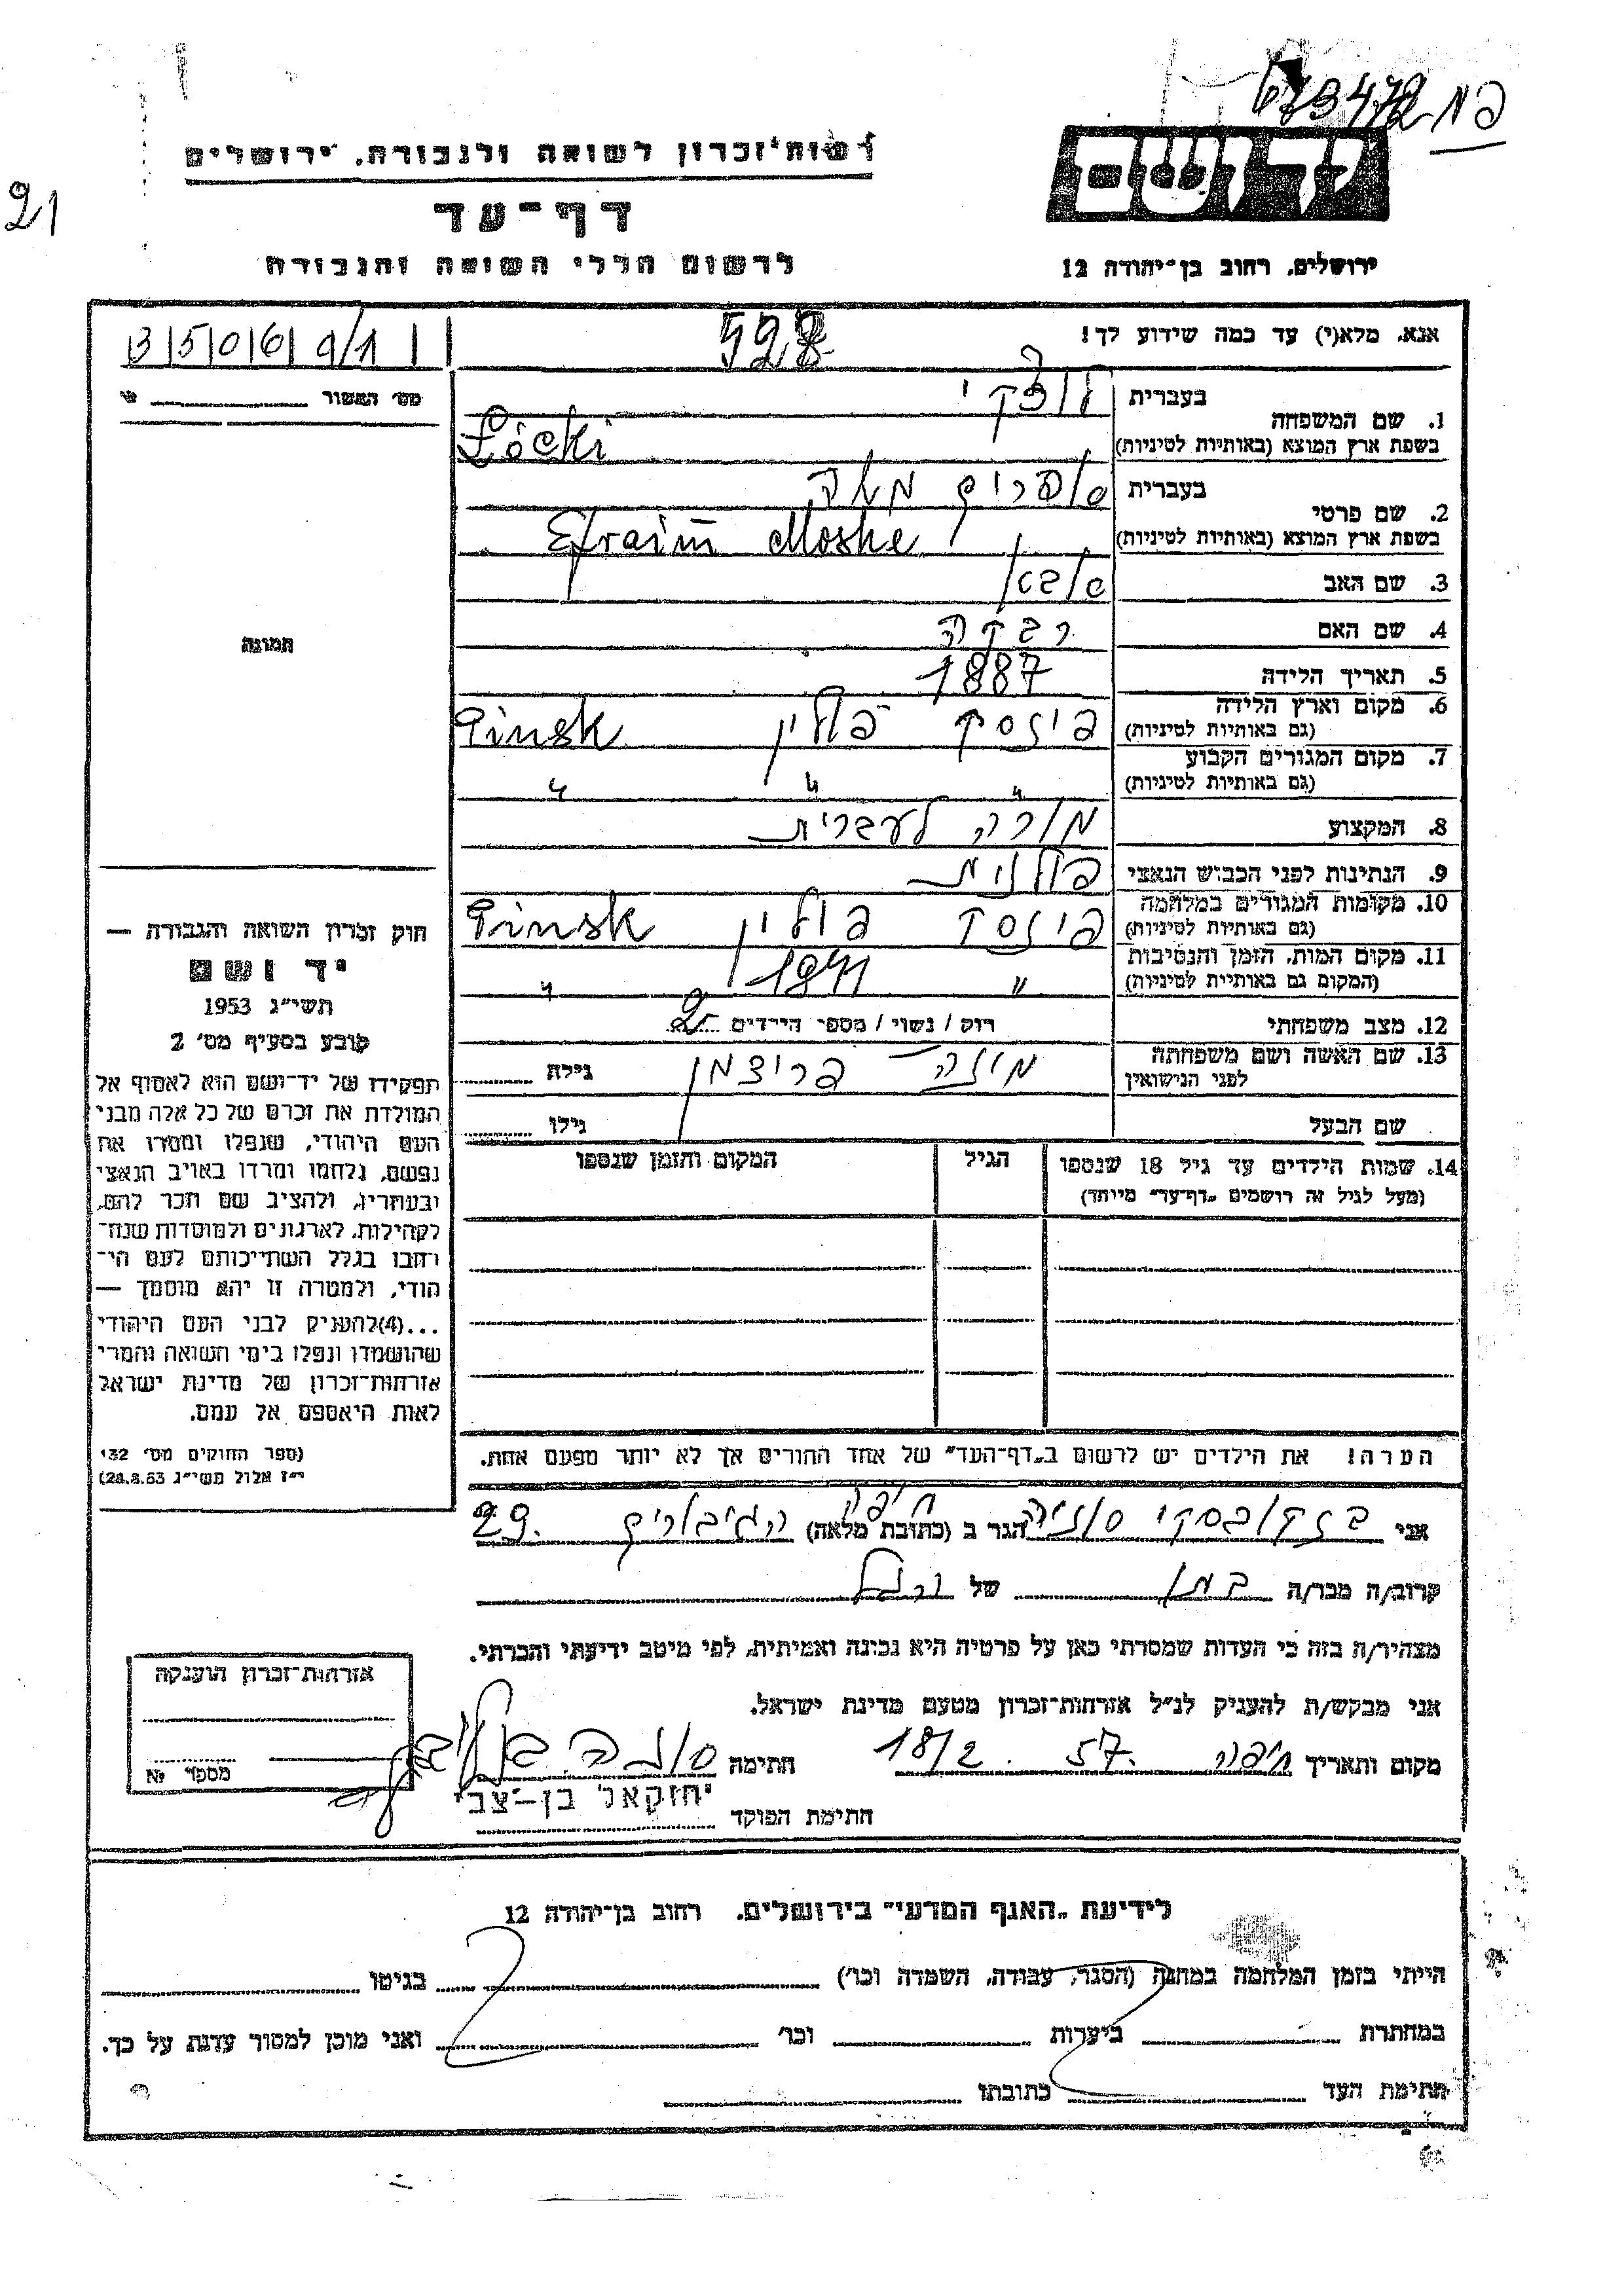 673472 פא
21
רשות זכרון לשואה ולגבורה, ירושלים
דף-עד
לרשום חללי השואה והגבורה
יד ושם
ירושלים, רחוב בן-יהודה 12
אנא, מלא(י) עד כמה שידוע לך!
528
3/5/0/6/9/1
מס' האשור
1. שם המשפחה
בעברית לוצקי
בשפת ארץ המוצא (באותיות לטיניות) Łócki
2. שם פרטי
בעברית אפרים משה
בשפת ארץ המוצא (באותיות לטיניות) Efraim Moshe
3. שם האב
4. שם האם רבקה
5. תאריך הלידה 1887
6. מקום וארץ הלידה פינסק פולין Pinsk
(גם באותיות לטיניות)
7. מקום המגורים הקבוע " " "
(גם באותיות לטיניות)
8. המקצוע מורה לעברית
9. הנתינות לפני הכבוש הנאצי פולנית
10. מקומות המגורים במלחמה פינסק פולין Pinsk
(גם באותיות לטיניות)
11. מקום המות, הזמן והנסיבות " 1941 "
(המקום גם באותיות לטיניות)
12. מצב משפחתי רוק / נשוי / מספר הילדים 2
13. שם האשה ושם משפחתה
לפני הנישואין פריצמן גילה
שם הבעל גילו
14. שמות הילדים עד גיל 18 שנספו הגיל המקום והזמן שנספו
(מעל לגיל זה רושמים "דף-עד" מיוחד)
הערה! את הילדים יש לרשום ב"דף-העד" של אחד ההורים אך לא יותר מפעם אחת.
תמונה
חוק זכרון השואה והגבורה —
יד ושם
תשי"ג 1953
קובע בסעיף מס' 2
תפקידו של יד-ושם הוא לאסוף אל
המולדת את זכרם של כל אלה מבני
העם היהודי, שנפלו ומסרו את
נפשם, נלחמו ומרדו באויב הנאצי
ובעוזריו, ולהציב שם וזכר להם,
לקהילות, לארגונים ולמוסדות שנח-
רבו בגלל השתייכותם לעם הי-
הודי, ולמטרה זו יהא מוסמך —
...(4) להעניק לבני העם היהודי
שהושמדו ונפלו בימי השואה והמרי
אזרחות-זכרון של מדינת ישראל
לאות היאספם אל עמם.
(ספר החוקים מס' 132
י"ז אלול תשי"ג 28.8.53)
אני הגר ב (כתובת מלאה) חיפה הגיבורים 29.
קרוב/ה מכר/ה של
מצהיר/ה בזה כי העדות שמסרתי כאן על פרטיה היא נכונה ואמיתית, לפי מיטב ידיעתי והכרתי.
אני מבקש/ת להעניק לנ"ל אזרחות-זכרון מטעם מדינת ישראל.
מקום ותאריך חיפה 18/2. 57. חתימה
חתימת הפוקד יחזקאל בן-צבי
אזרחות-זכרון הוענקה
מספר №
לידיעת "האגף המדעי" בירושלים, רחוב בן-יהודה 12
הייתי בזמן המלחמה במחנה (הסגר, עבודה, השמדה וכו') בגיטו
במחתרת ביערות וכו' ואני מוכן למסור עדות על כך.
חתימת העד כתובתו